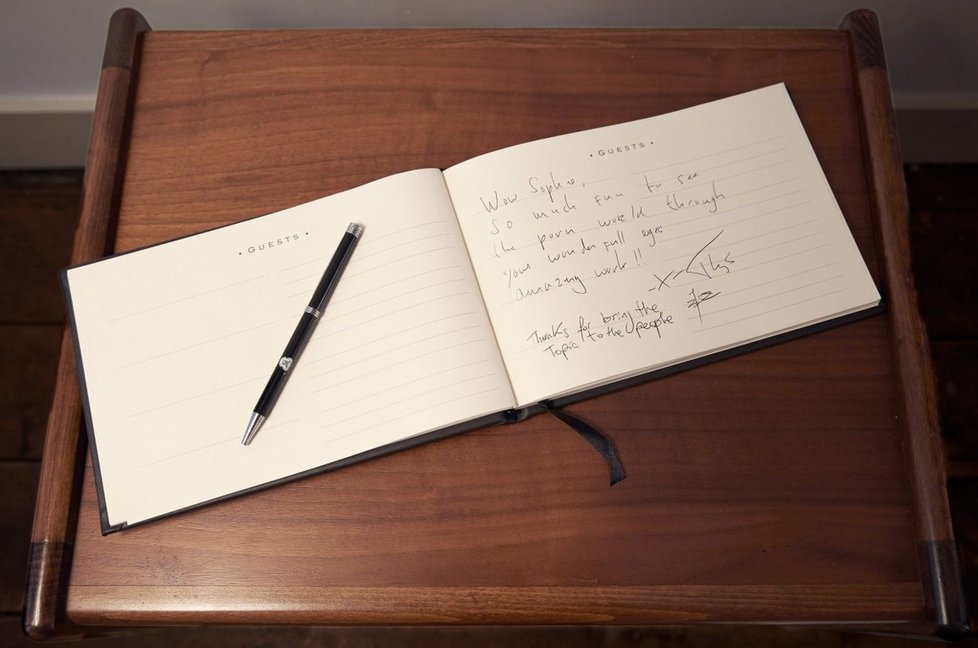 • GUESTS •
• GUESTS •
Wow Sophie,
so much fun to see
the porn world through
your wonder full eyes.
amazing work!!
-X-
Thanks for bring the
Topic to the people